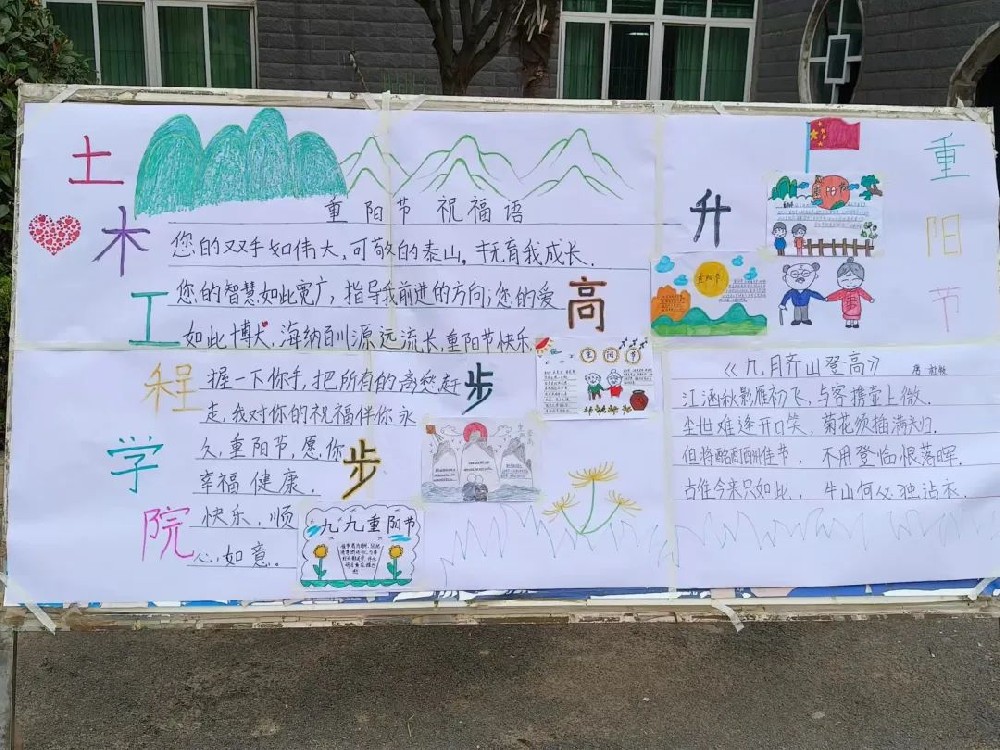 土木工程学院
重阳节祝福语
您的双手如伟大,可敬的泰山。抚育我成长.
您的智慧,如此宽广,指导我前进的方向;您的爱
如此博大,海纳百川源远流长,重阳节快乐
握一下你手,把所有的忧愁赶
走,我对你的祝福伴你永
久,重阳节,愿你
幸福健康.
快乐,顺
心,如意。
步步高升
重阳节
重阳节
重阳节
九九重阳节
《九月齐山登高》 唐
江涵秋影雁初飞,与客携壶上微.
尘世难逢开口笑,菊花须插满头归.
但将酩酊酬佳节,不用登临恨落晖.
古往今来只如此,牛山何必独沾衣.